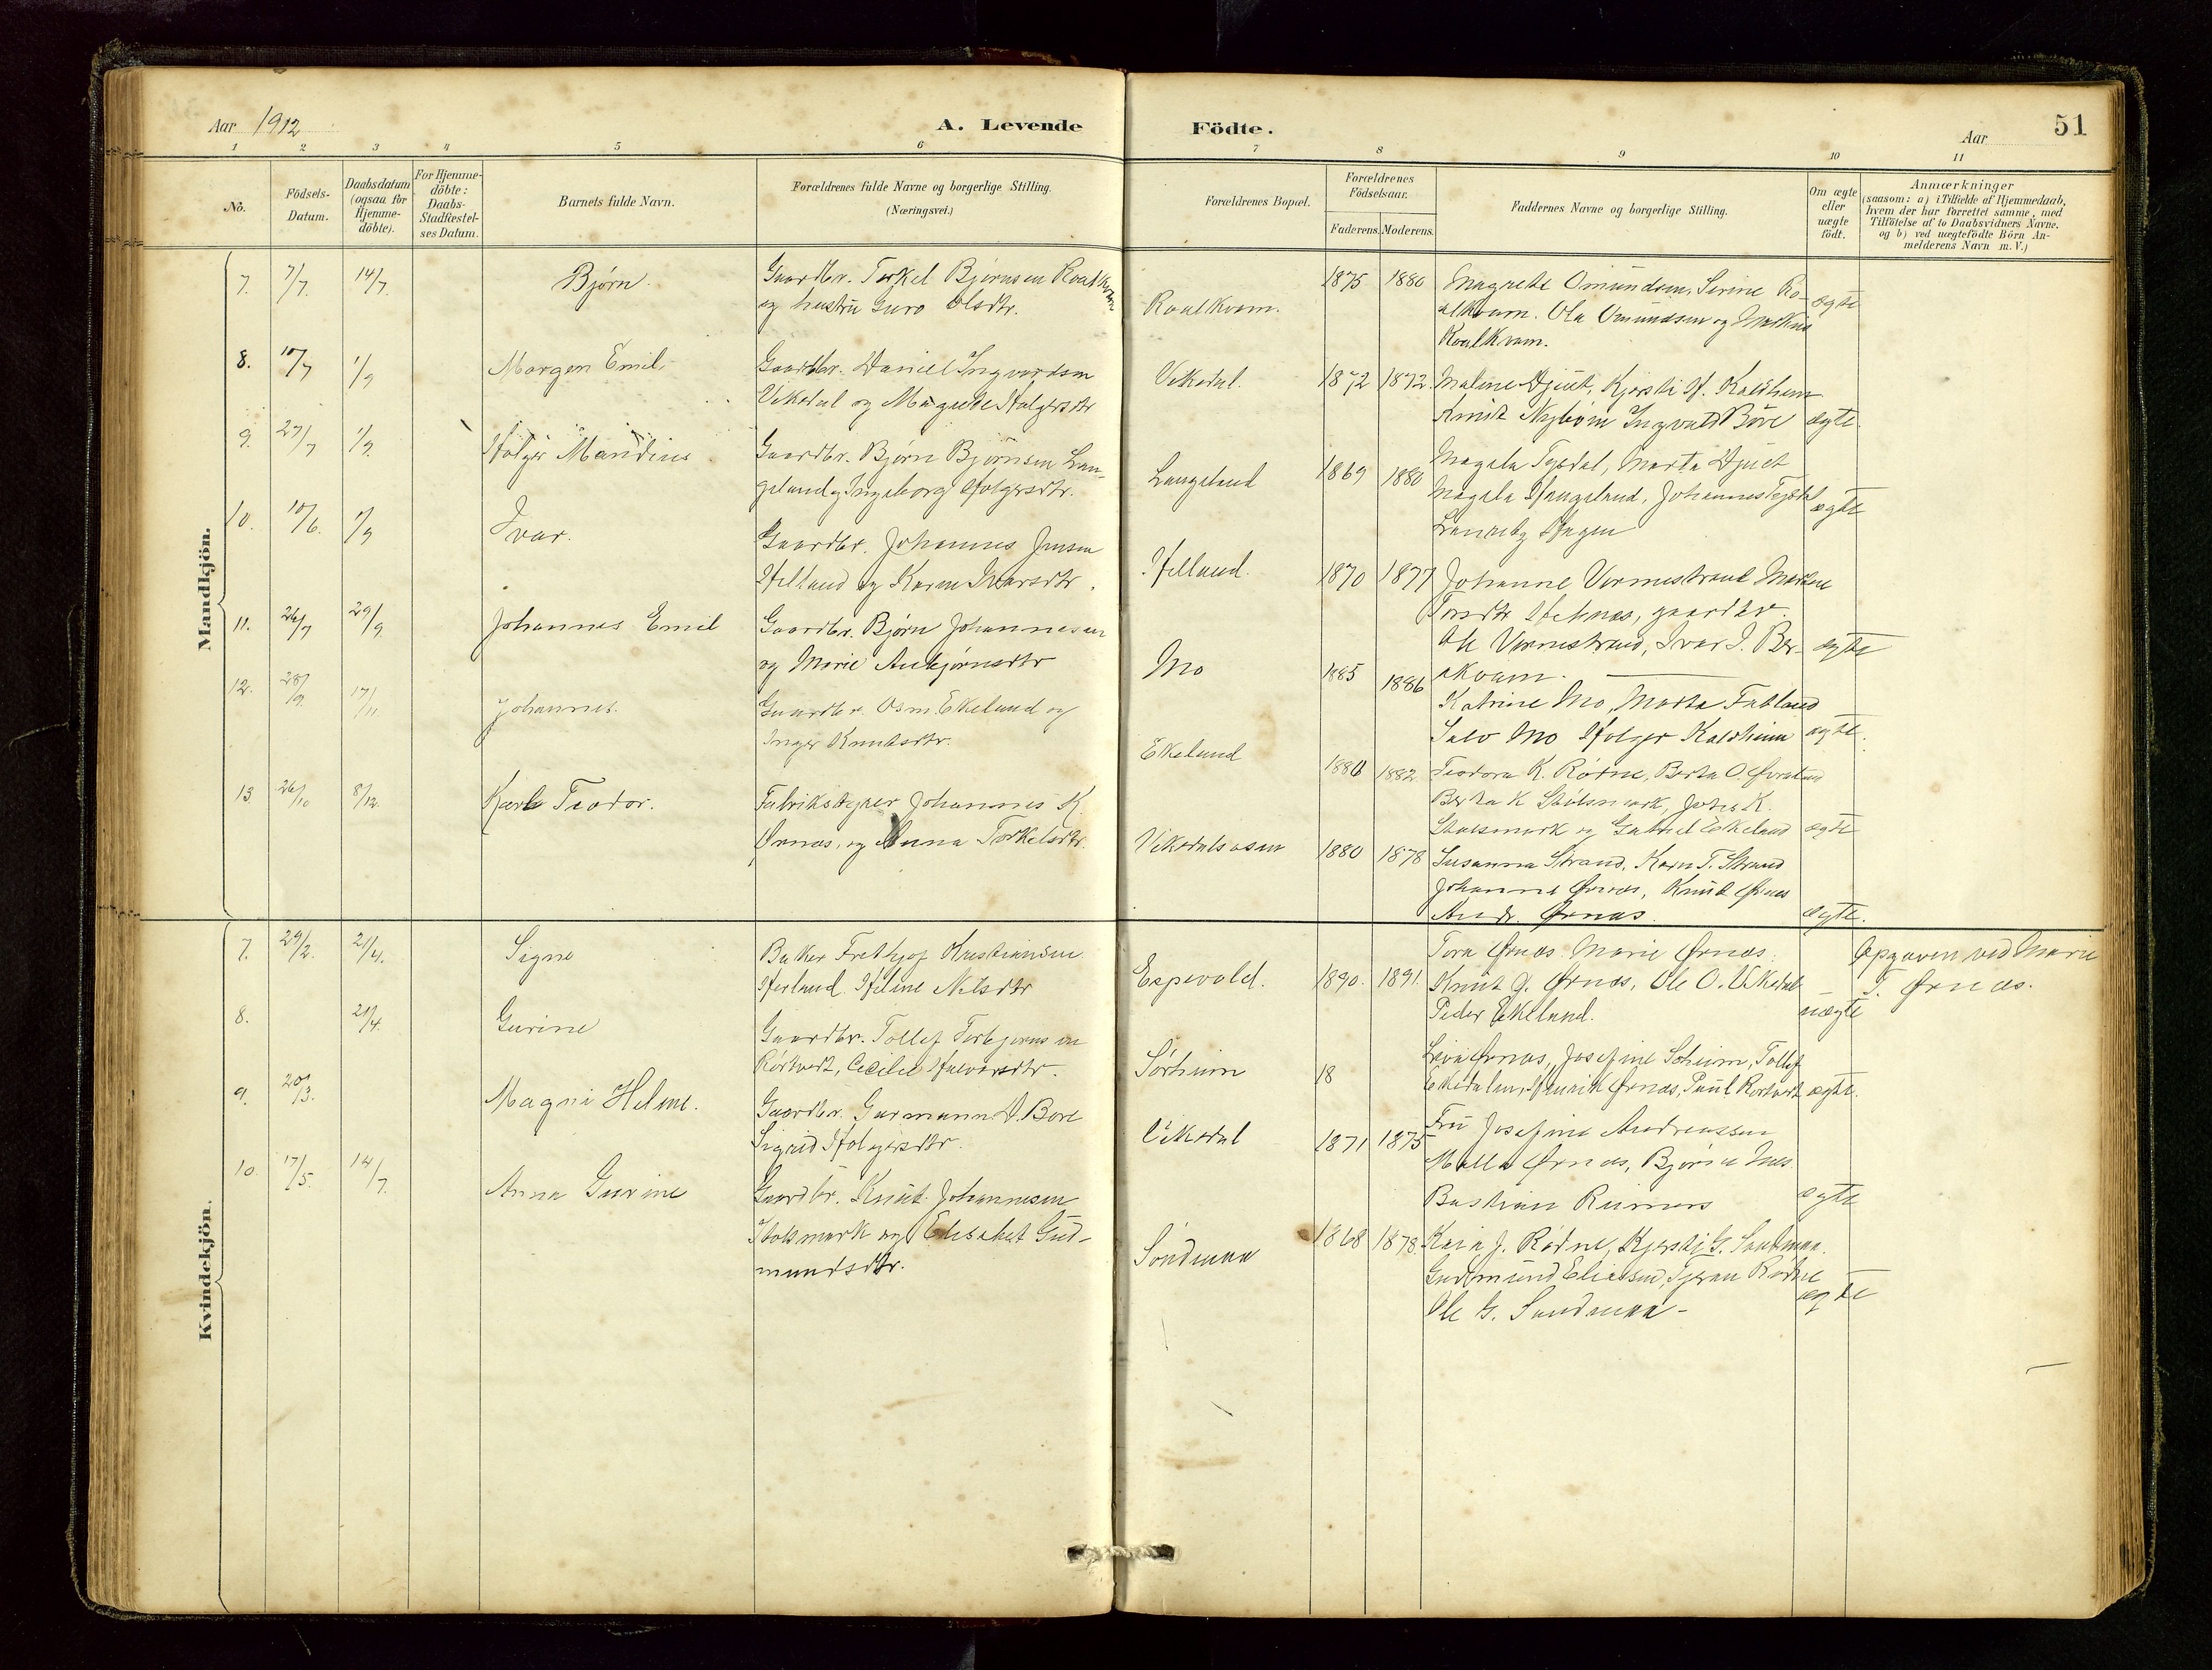 Aar 1912
A. Levende Födte.
Aar
51
1 2 3 4 5 6 7 8 9 10 11
No.
Födsels-
Datum.
Daabsdatum
(ogsaa for
Hjemme-
döbte).
For Hjemme-
döbte:
Daabs-
Stadfæstel-
ses Datum.
Barnets fulde Navn.
Forældrenes fulde Navne og borgerlige Stilling.
(Næringsvei.)
Forældrenes Bopæl.
Forældrenes
Födselsaar.
Faderens. Moderens.
Faddernes Navne og borgerlige Stilling.
Om ægte
eller
uægte
födt.
Anmærkninger
(saasom: a) i Tilfælde af Hjemmedaab,
hvem der har forrettet samme, med
Tilföielse af to Daabsvidners Navne,
og b) ved uægtefödte Börn An-
melderens Navn m. V.)
Mandkjön.
7. 7/7. 14/7. Bjørn.
Gaardbr. Torkel Bjørnsen Roalkvam
og hustru Guro Olsdtr.
Roalkvam.
1875 1880
Magrete Omundsen, Serine Ro-
alkvam. Ola Omundsen og
Roalkvam.
ægte
8. 10/7 1/9 Morgen Emil.
Gaardbr. Daniel Ingvardsen
Vikedal og Magrete Holgersdtr
Vikedal.
1872 1872.
Maline Djuet, Kjersti H. Kaldheim
Knut Nybøm Ingvald Böve
ægte.
9. 27/7 1/9. Holger Mandius
Gaardbr. Bjørn Bjørnsen Lan-
geland og Ingeborg Holgersdtr.
Langeland
1869 1880
Magela Tysdal, Marta Djuet
Magela Haugeland, Johannes Tysdal
Hagen
ægte
10. 10/6. 1/9 Ivar.
Gaardbr. Johannes Jensen
Helland og Karen Ivarsdtr.
Helland.
1870 1877
Johanne Vormestrand
gaardbr.
Ole Vormestrand, Ivar I. Ber-
akvam.
ægte
11. 26/7 29/9. Johannes Emil
Gaardbr. Bjørn Johannesen
og Marie Anbjørnsdtr
Mo
1885 1886
Katrine Mo, Marta Fatland
Salv Mo Holger Kaldheim
ægte.
12. 28/9. 17/11 Johannes.
Gaardbr. Osm. Ekeland og
Inger Knutsdtr.
Ekeland
1886 1882.
Teodora K. Rødne, Berta O.
Berta K Stølsmark,
Stølsmark og Gabriel Ekeland
ægte
13 26/10 8/12. Karl Teodor.
Fabrikseier Johannes K.
Ørnæs, og Anna Torkelsdtr.
Vikedalsosen
1880 1878
Susanna Strand, Karen T. Strand
Johanne Ørnæs, Knut Ørnæs
Andr. Ørnæs.
ægte.
Kvindekjön.
7. 29/2. 21/4. Signe
Baker Frethjof Kristiansen
Heland. Helene Nilsdtr
Espevold.
1890. 1891.
Tora Ørnæs. Marie Ørnæs.
Knut J. Ørnæs, Ole O. Vikedal
Peder Ekeland.
uægte
Opgaven ved Marie
T. Ørnæs.
8. 21/4. Gurine
Gaardbr. Tollef Torbjørnsen
Rørtvedt, Cecilie Halvorsdtr.
Sørheim
18
Ørnæs, Josefine Søheim, Tollef
Ekedalen, Henrik Ørnæs, Paul Rørtvedt
ægte.
9. 20/3. Magni Helene.
Gaardbr. Garmann D. Bore
Sigrid Holgersdtr.
Vikedal
1871 1875
Fru Josefine Andreassen
Malla Ørnæs, Bjørn
Bastian Reimers
ægte
10. 17/5. 14/7. Anna Gurine
Gaardbr. Knut Johannesen
Stølsmark og Elisabet Gud-
mundsdtr.
Søndenaa
1868 1878.
Kaia J. Rødne, Kjersti G. Sandenaa.
Gudmund Eliassen, Rødne
Ole G. Sandenaa -
ægte